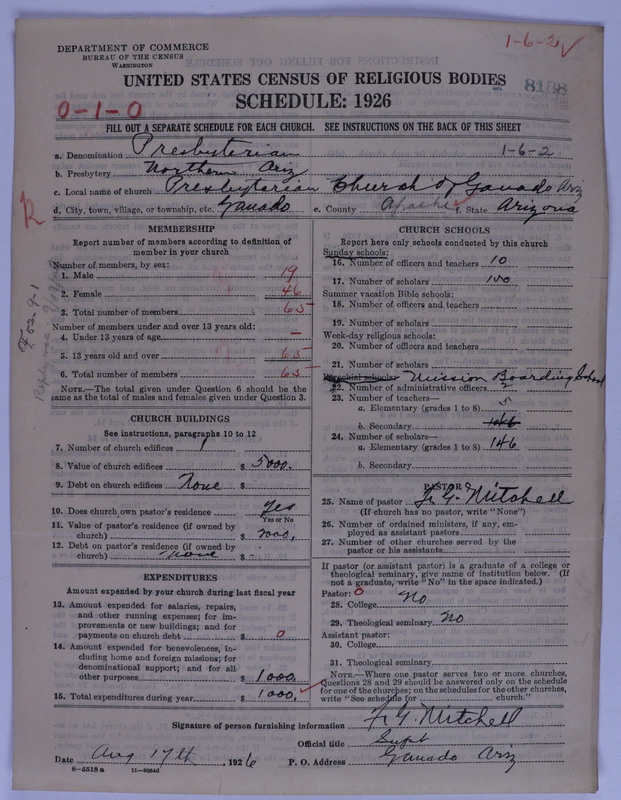 1-6-2 √
DEPARTMENT OF COMMERCE
BUREAU OF THE CENSUS
WASHINGTON
UNITED STATES CENSUS OF RELIGIOUS BODIES
8168
SCHEDULE: 1926
0-1-0
FILL OUT A SEPARATE SCHEDULE FOR EACH CHURCH. SEE INSTRUCTIONS ON THE BACK OF THIS SHEET
a. Denomination Presbyterian 1-6-2
b. Presbytery Northern Ariz
c. Local name of church Presbyterian Church of Ganado Ariz
d. City, town, village, or township, etc. Ganado e. County Apache f. State Arizona
R
MEMBERSHIP
Report number of members according to definition of
member in your church
Number of members, by sex:
1. Male 19
2. Female 46
3. Total number of members 65
Number of members under and over 13 years old:
4. Under 13 years of age —
5. 13 years old and over 65
6. Total number of members 65
NOTE.—The total given under Question 6 should be
same as the total of males and females given under Question 3.
CHURCH BUILDINGS
See instructions, paragraphs 10 to 12
7. Number of church edifices 1
8. Value of church edifices $ 5000.
9. Debt on church edifices None $
10. Does church own pastor's residence Yes
Yes or No
11. Value of pastor's residence (if owned by
church) $
12. Debt on pastor's residence (if owned by
church) None $
EXPENDITURES
Amount expended by your church during last fiscal year
13. Amount expended for salaries, repairs,
and other running expenses; for im-
provements or new buildings; and for
payments on church debt $ 0
14. Amount expended for benevolences, in-
cluding home and foreign missions; for
denominational support; and for all
other purposes $ 1000.
15. Total expenditures during year $ 1000. √
CHURCH SCHOOLS
Report here only schools conducted by this church
Sunday schools:
16. Number of officers and teachers 10
17. Number of scholars 100
Summer vacation Bible schools:
18. Number of officers and teachers
19. Number of scholars
Week-day religious schools:
20. Number of officers and teachers
21. Number of scholars
Parochial schools: Mission Boarding School
22. Number of administrative officers
23. Number of teachers—
a. Elementary (grades 1 to 8) 5
b. Secondary 146
24. Number of scholars—
a. Elementary (grades 1 to 8) 146
b. Secondary
PASTOR
25. Name of pastor F. G. Mitchell
(If church has no pastor, write "None")
26. Number of ordained ministers, if any, em-
ployed as assistant pastors
27. Number of other churches served by the
pastor or his assistants
If pastor (or assistant pastor) is a graduate of a college or
theological seminary, give name of institution below. (If
not a graduate, write "No" in the space indicated.)
Pastor: 0
28. College No
29. Theological seminary No
Assistant pastor:
30. College
31. Theological seminary
NOTE.—Where one pastor serves two or more churches,
Questions 28 and 29 should be answered only on the schedule
for one of the churches; on the schedules for the other churches,
write "See schedule for church."
Signature of person furnishing information F. G. Mitchell
Official title Supt
Date Aug 17th, 1926 P. O. Address Ganado Ariz
8-5518 a